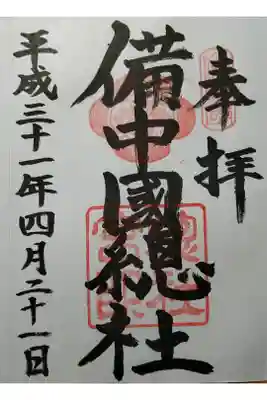 奉拝
備中國總社
平成三十一年四月二十一日